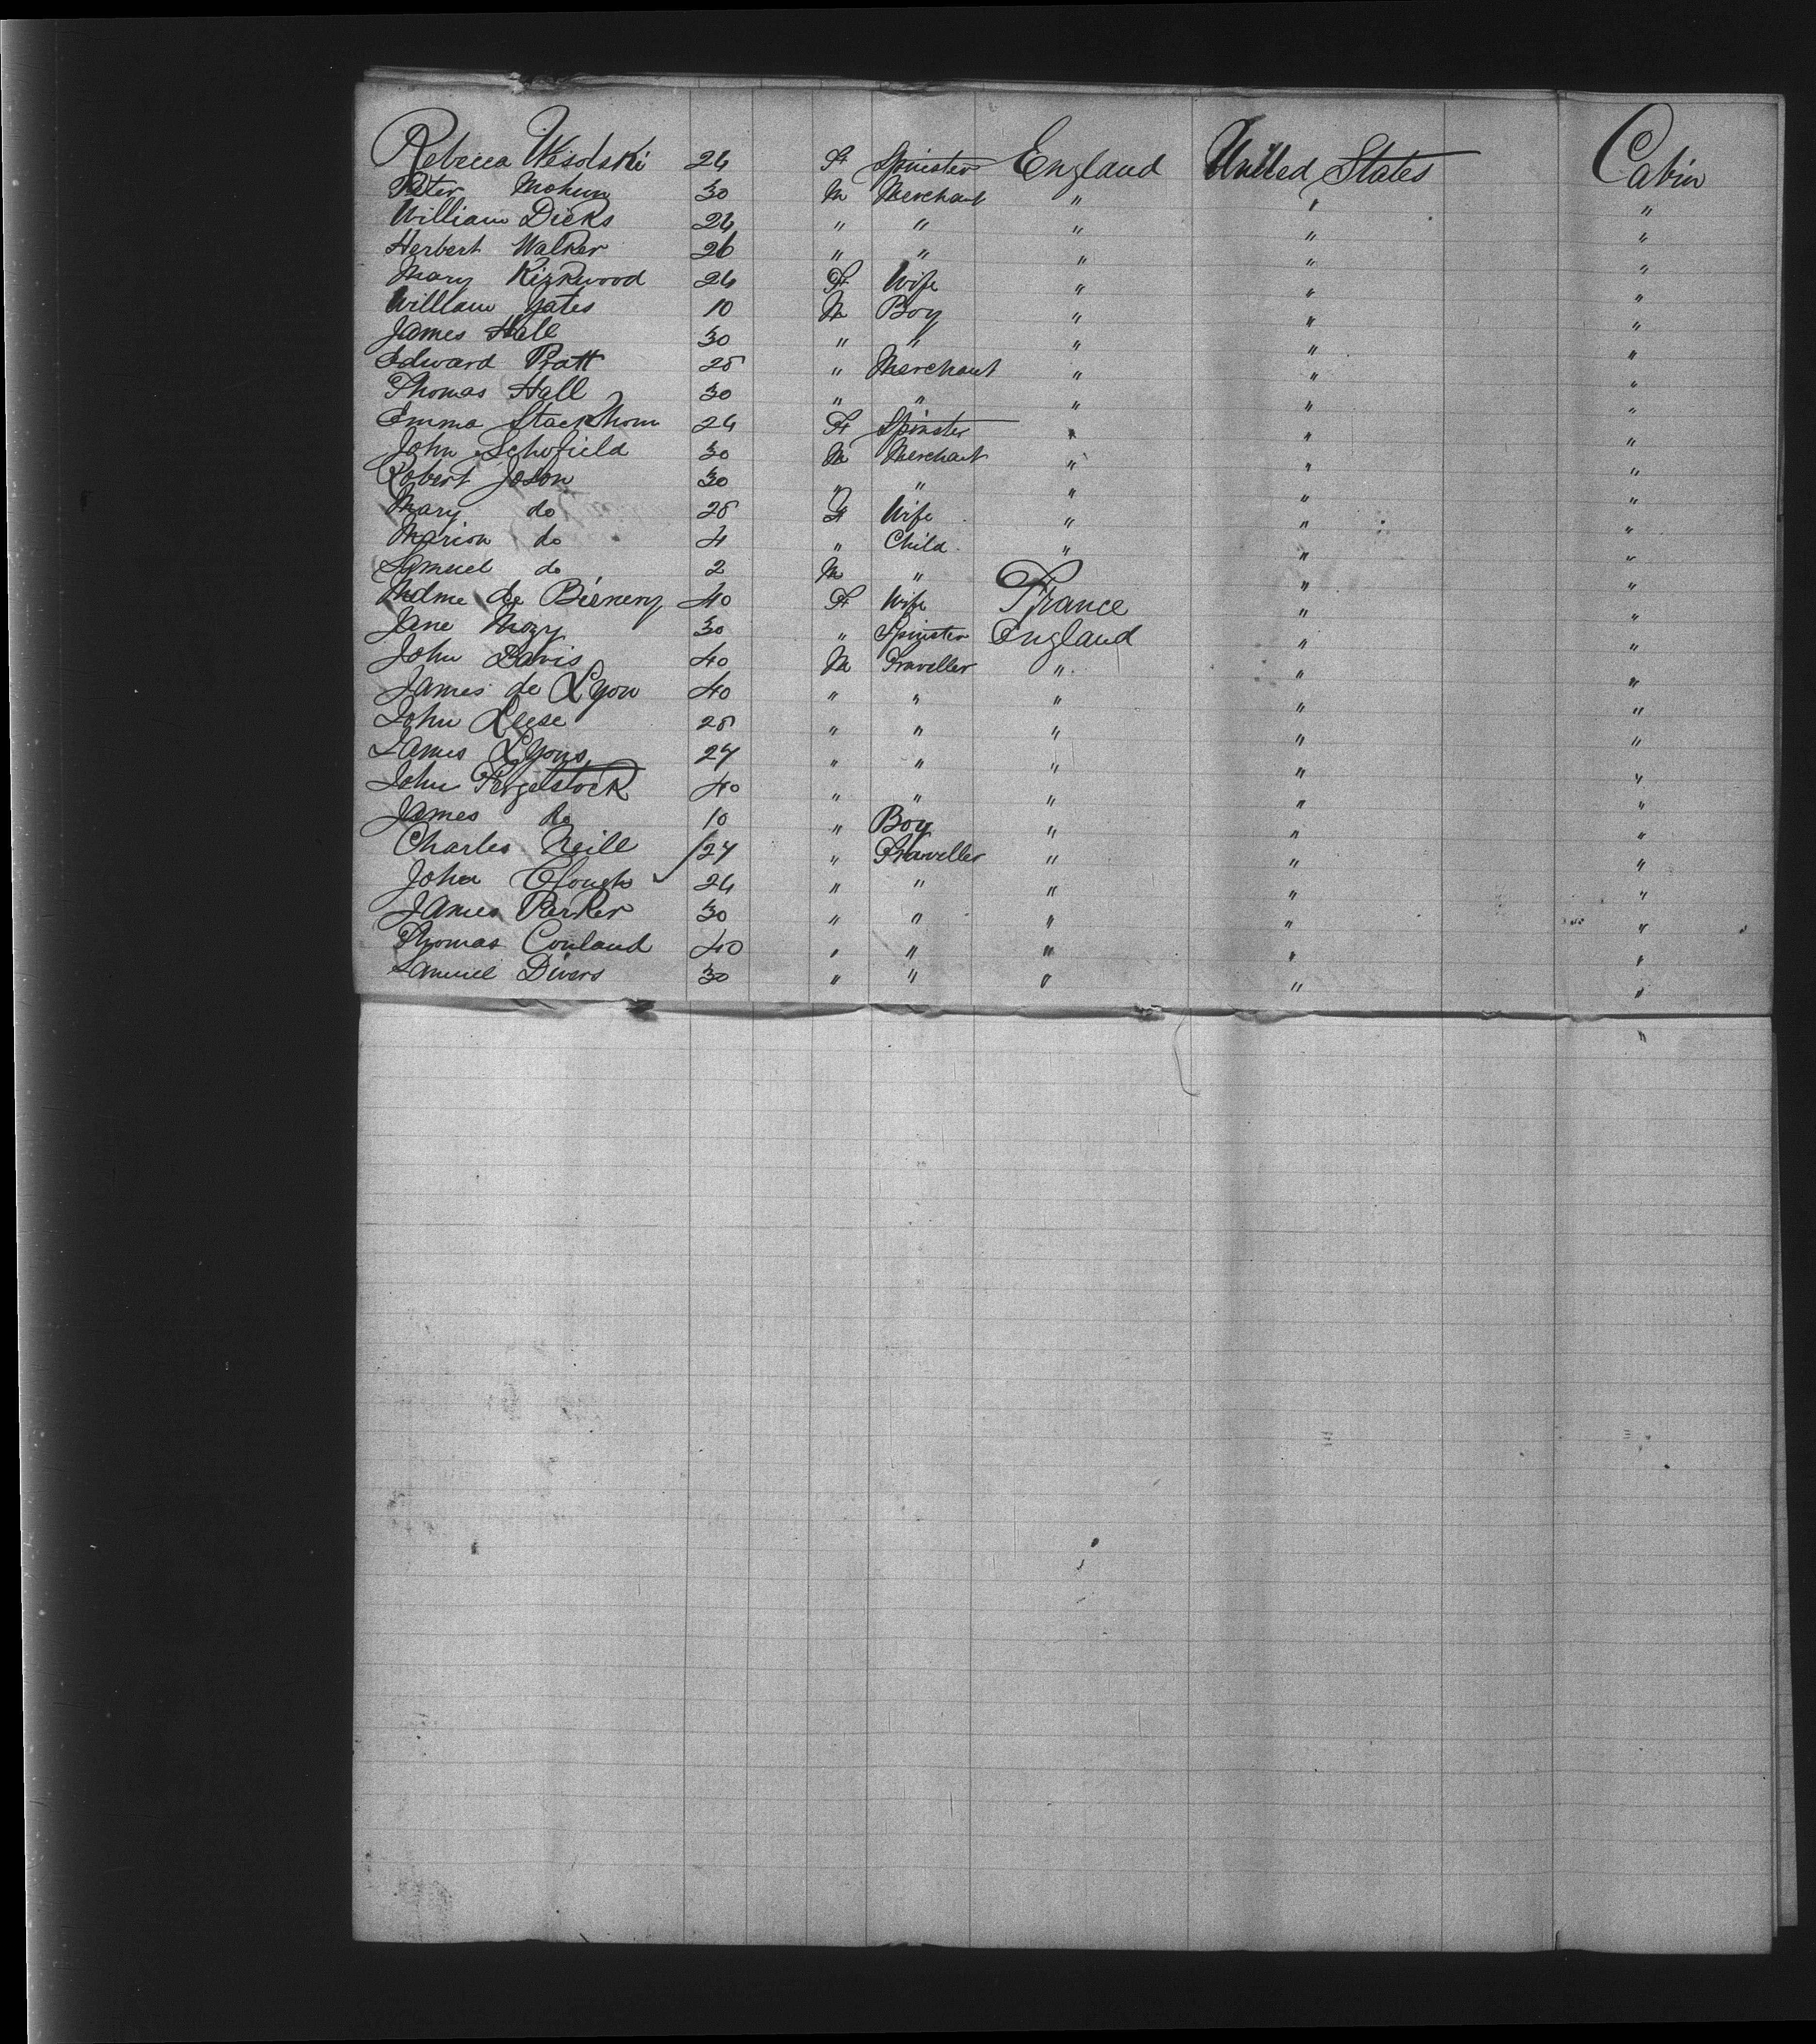 Rebecca Wesolski 24 F Spinster England United States Cabin
Peter Mohun 30 M Merchant " " "
William Dicks 24 " " " " "
Herbert Walker 26 " " " " "
Mary Kirkwood 24 F Wife " " "
William Yates 10 M Boy " " "
James Hall 30 " " " " "
Edward Pratt 28 " Merchant " " "
Thomas Hall 30 " " " " "
Emma Stackthom 24 F Spinster " " "
John Schofield 30 M Merchant " " "
Robert Joson 30 " " " " "
Mary do 28 F Wife " " "
Marion do 4 " Child " " "
Samuel do 2 M " " "
Mdme de Biernery 40 F Wife France " "
Jane Mozy 30 " Spinster England " "
John Davis 40 M Traveller " " "
James de Lyon 40 " " " " "
John Leese 28 " " " " "
James Lyons 27 " " " " "
John Pergelstock 40 " " " " "
James do 10 " Boy " " "
Charles Neill 27 " Traveller " " "
John Clough 24 " " " " "
James Parker 30 " " " " "
Thomas Conland 40 " " " " "
Samuel Divers 30 " " " " "
"